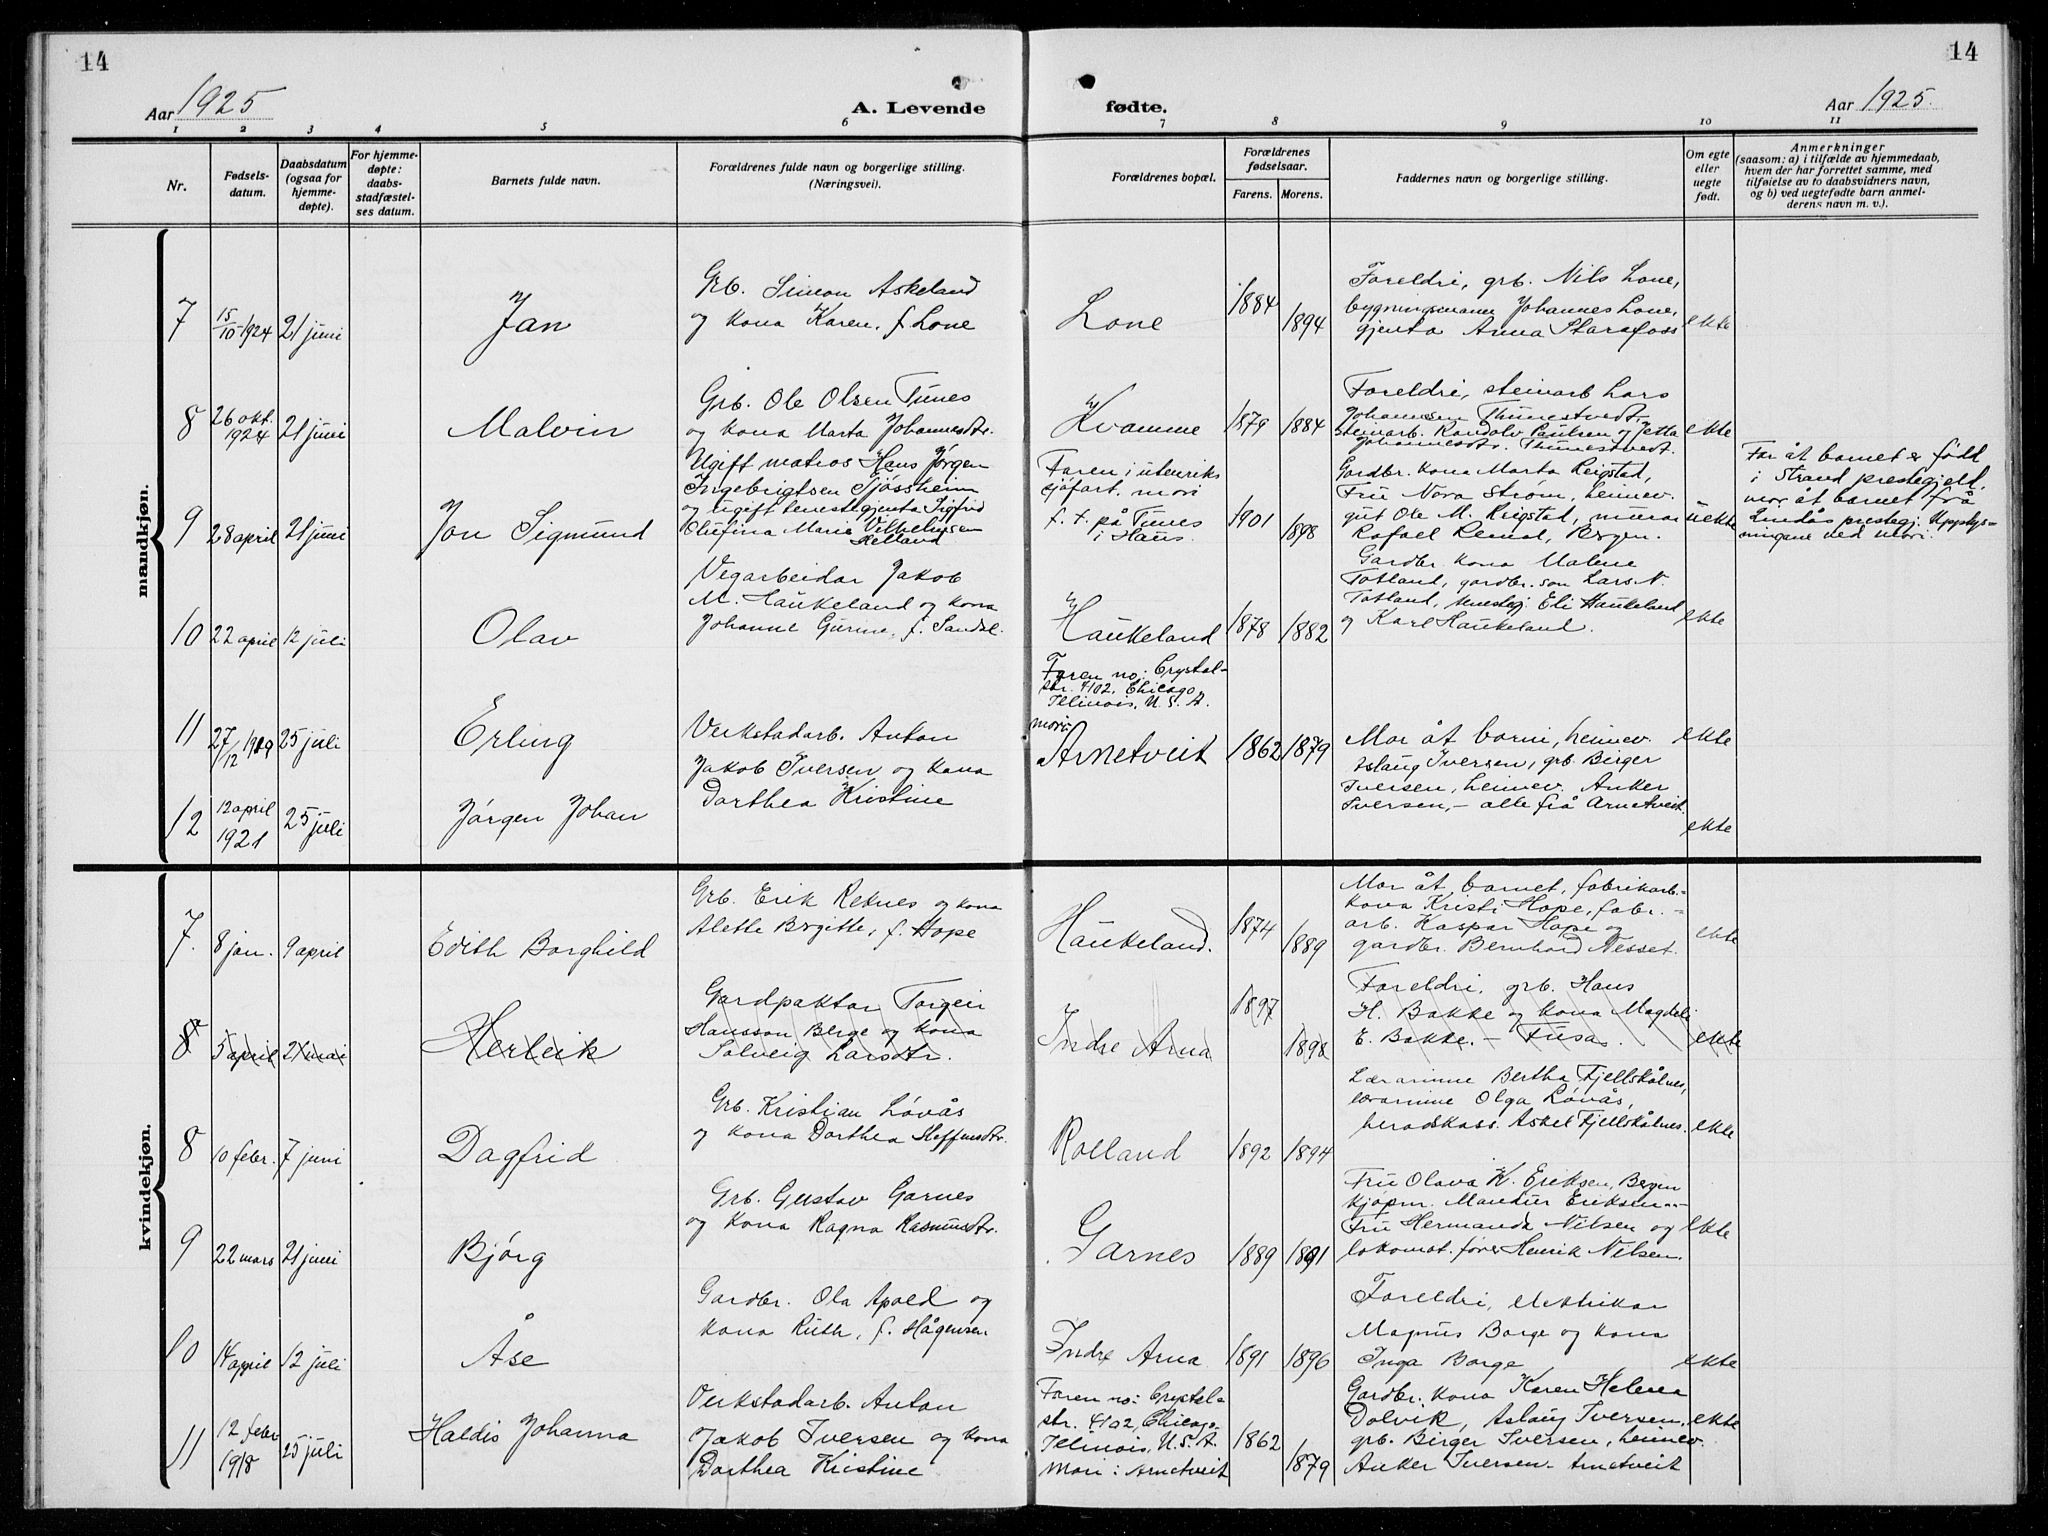 14
14
Aar 1925
A. Levende
fødte.
Aar 1925.
1 2 3 4 5 6 7 8 9 10 11
Nr.
Fødsels-
datum.
Daabsdatum
(ogsaa for
hjemme-
døpte).
For hjemme-
døpte:
daabs-
stadfæstel-
ses datum.
Barnets fulde navn.
Forældrenes fulde navn og borgerlige stilling.
(Næringsvei).
Forældrenes bopæl.
Forældrenes
fødselsaar.
Farens. Morens.
Faddernes navn og borgerlige stilling.
Om egte
eller
uegte
født.
Anmerkninger
(saasom: a) i tilfælde av hjemmedaab,
hvem der har forrettet samme, med
tilføielse av to daabsvidners navn,
og b) ved uegtefødte barn anmel-
derens navn m. v.).
mandkjøn.
7
15/10 1924
21 juni
Jan
Grb. Simon Askeland
og kona Karen, f. Lone
Lone
1884
1894
Foreldri, grb. Nils Lone,
bygningsmann Johannes Lone,
gjenta Anna Starefoss
ekte
8
26 okt.
1924
21 juni
Malvin
Grb. Ole Olsen Tunes
og kona Marta Johannesdtr.
Kvamme
1879
1884
Foreldri, steinarb Lars
Johannsen Thunestvedt,
steinarb. Randolv Paulsen og Jetta
Johannesdtr. Thunestvedt.
ekte
9
28 april
21 juni
Jon Sigmund
Ugift matros Hans Jørgen
Ingebrigtsen Sjössheim
og ugift tenestegjenta Sigfrid
Olufina Marie Vilhelmsen
Helland
Faren i utenriks
sjøfart. mori
f. t. på Tunes
i Haus.
1901
1898
Gardbr. kona Marta Reigstad,
Fru Nora Strøm, heimev.
gut Ole M. Reigstad, murar
Rafael Reinal, Bergen.
uekte
Far åt barnet er född
i Strand prestegjeld.
mor åt barnet frå
Lindås prestegj. Upplys-
ningane ved mori.
10
22 april
12 juli
Olav
Vegarbeidar Jakob
M. Haukeland og kona
Johanne Gurine, f. Sandal.
Haukeland
1878
1882
Gardbr. kona Malene
Totland, gardbr. son Lars N.
Totland, tenestegj. Eli Haukeland
og Karl Haukeland.
ekte
11
27/12 1919
25 juli
Erling
Verkstadarb. Anton
Jakob Iversen og kona
Dorthea Kristine
Faren no: Crystal-
str. 4102, Chicago,
Illinois, U. S. A.
mori:
Arnetveit
1862
1879
Mor åt borni, heimev.
Aslaug Iversen, grb Birger
Iversen, heimev. Anker
Iversen, - alle frå Arnetveit.
ekte
12
12 april
1921
25 juli
Jørgen Johan
ekte
kvindekjøn.
7.
8 jan.
9 april
Edith Borghild
Grb. Erik Reknes og kona
Alette Bergitte, f. Hope
Haukeland.
1874
1889
Mor åt barnet, fabrikarb.-
kona Kristi Hope, fabr.-
arb. Kaspar Hope og
gardbr. Bernhard Nesset.
ekte
8
5 april
21 mai
Herleik
Gardpaktar Torgeir
Hansson Berge og kona
Solveig Larsdtr.
Indre Arna
1897
1898
Foreldri, grb. Hans
H. Bakke og kona Magdeli
E. Bakke. - Fusa.
ekte
8
10 febr.
7 juni
Dagfrid
Grb. Kristian Lövås
og kona Dorthea Steffensdtr.
Rolland
1892
1894
Lærarinne Bertha Fjellskålnes,
lærarinne Olga Lövås,
heradskass. Askel Fjellskålnes.
ekte
9
22 mars
21 juni
Bjørg
Grb. Gustav Garnes
og kona Ragna Rasmusdtr.
Garnes
1889
1891
Fru Olava K. Eriksen, Bergen
kjøpm. Mandius Eriksen -"-
Fru Hermanda Nilsen og
lokomot. fører Henrik Nilsen.
ekte
10
14 april
12 juli
Åse
Gardbr. Ola Apold og
kona Ruth, f. Hågensen.
Indre Arna
1891
1896
Foreldri, elektrikar
Magnus Borge og kona
Inga Borge
ekte
11
12 febr
1918
25 juli
Haldis Johanna
Verkstadarb. Anton
Jakob Iversen og kona
Dorthea Kristine
Faren no: Crystal-
str. 4102, Chicago,
Illinois, U.S.A.
Mori: Arnetveit
1862
1879
Gardbr. kona Karen Helena
Dolvik, Aslaug Iversen,
grb. Birger Iversen, heimev.
Anker Iversen. Arnetveit
ekte